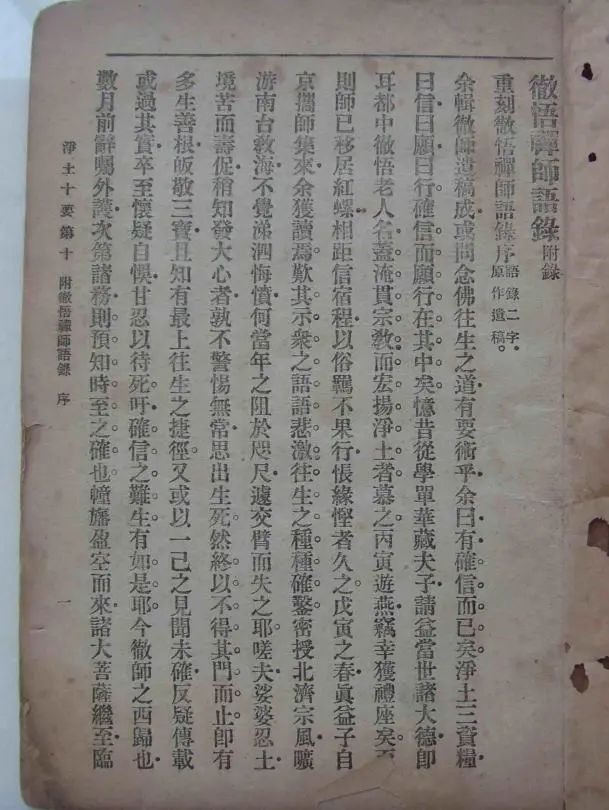 徹悟禪師語錄附錄
重刻徹悟禪師語錄序語錄二字原作遺稿。
余輯徹師遺稿成或問念佛往生之道有要術乎余曰有確信而已矣淨土三資糧
曰信曰願曰行確信而願行在其中矣憶昔從學單華藏夫子請益當世諸大德卽
耳都中徹悟老人名蓋淹貫宗敎而宏揚淨土者慕之丙寅遊燕竊幸獲禮座矣至
則師已移居紅螺相距信宿程以俗羈不果行悵緣慳者久之戊寅之春眞益子自
京攜師集來余獲讀焉歎其示衆之語語悲激往生之種種確鑿密授北濟宗風曠
游南台敎海不覺涕泗悔憤何當年之阻於咫尺遽交臂而失之耶嗟夫娑婆忍土
境苦而壽促稍知發大心者孰不警惕無常思出生死然終以不得其門而止卽有
多生善根皈敬三寶且知有最上往生之捷徑又或以一己之見聞未確反疑傳載
或過其實卒至懷疑自悞甘忍以待死吁確信之難生有如是耶今徹師之西歸也
數月前辭囑外護次第諸務則預知時至之確也幢旛盈空而來諸大菩薩繼至臨
淨土十要第十 附徹悟禪師語錄 序 一